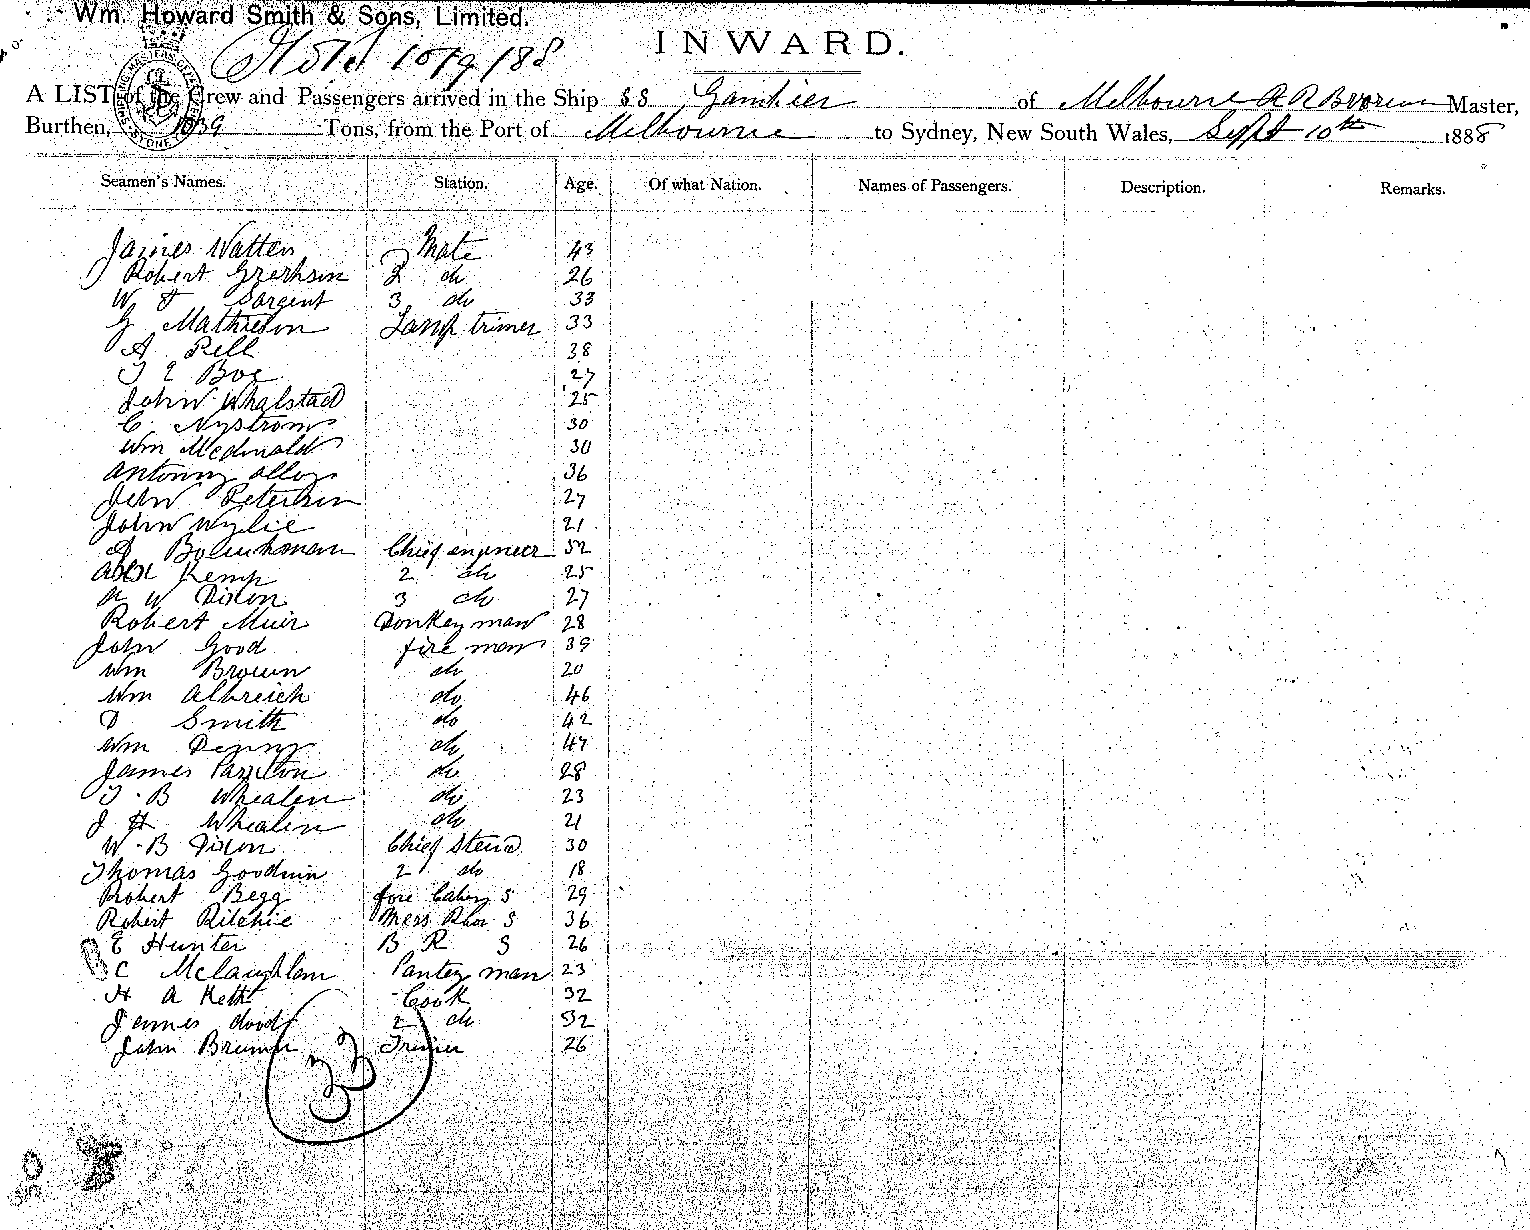 Wm. Howard Smith & Sons, Limited.
INWARD.
10/9/88
A LIST of the Crew and Passengers arrived in the Ship SS Gambier of Melbourne Master,
Burthen, 1039 Tons, from the Port of Melbourne to Sydney, New South Wales, Sept 10th 1888
Seamen's Names. Station. Age. Of what Nation. Names of Passengers. Description. Remarks.
James Watten Mate 43
Robert 2 do 26
W Sargent 3 do 33
G Mathieson Lamp trimer 33
A Pell 38
27
John Whalstad 25
C. Nystrom 30
Wm Mcdonald 30
Antonny 36
John Peterson 27
John Wylie 21
Chief engineer 52
Alex Kemp 2 do 25
W Dixon 3 do 27
Robert Muir Donkey man 28
John Good fire man 39
Wm Brown do 20
Wm Albreich do 46
D Smith do 42
Wm Denny do 47
James do 28
T. B Whealen do 23
J H Whealen do 21
W. B Dixon Chief Stewd 30
Thomas Goodwin 2 do 18
Robert Begg fore Cabin S 29
Robert Ritchie Mess Rom S 36
E Hunter B R S 26
C Mclaughlan Pantry man 23
H A Cook 32
James 2 do 32
John Trimer 26
33